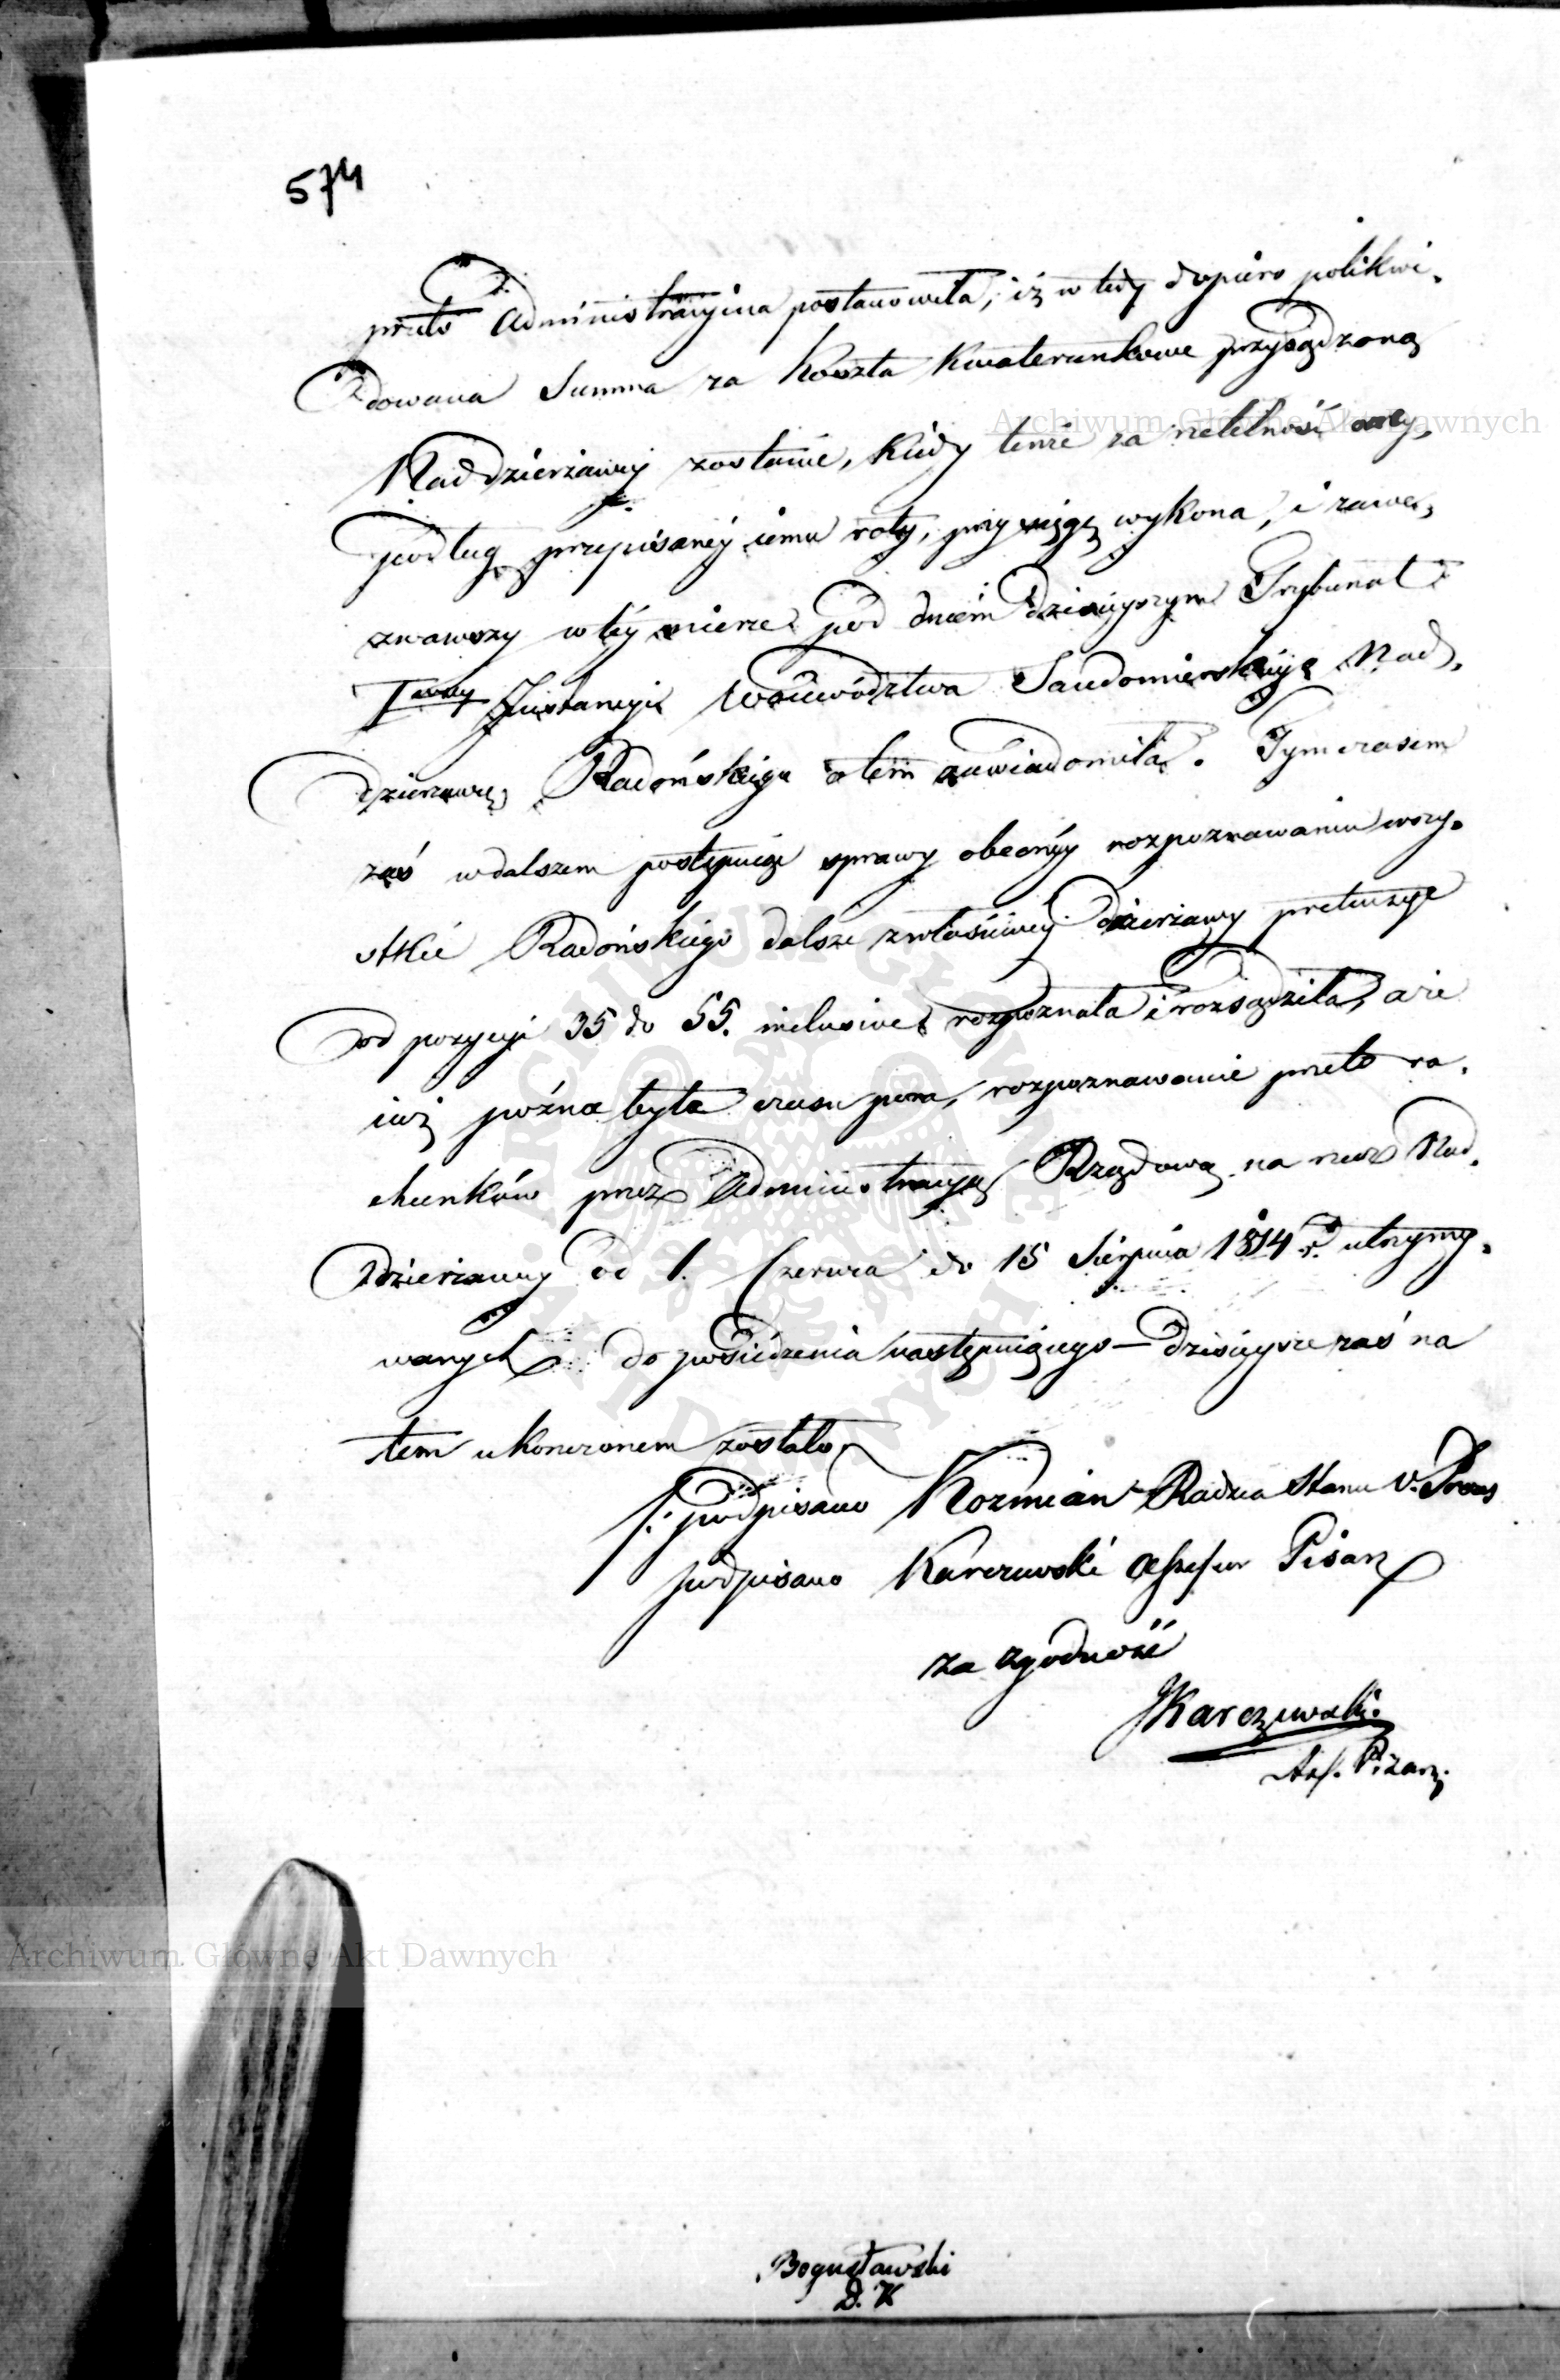 574
przeto Administracyina postanowiła, iż w tedy dopiero polikwi-
dowana Summa za koszta kwaterunkowe przysądzoną
Naddzierżawcy zostanie, kiedy tenże za rzetelność
podług przepisaney iemu roty, przysięgę wykona, i zawe-
zwawszy w téy mierze pod dniem dzisieyszym Trybunał
I Instancyi Woiewództwa Sandomierskiego Nad-
dzierżawcę Radońskiego o tem zawiadomiła. Tymczasem
zaś w dalszem postępie sprawy obecnéy rozpoznawaniu wszy-
stkie Radońskiego dalsze z właściwey dzierżawy pretensye
od pozycyi 35 do 55. inclusive rozpoznała i rozsądziła, a że
iuż późna była czasu pora, rozpoznawanie przeto ra-
chunków przez Administracyą Rządową na rzecz Nad-
dzierżawcy od 1. Czerwca do 15 Sierpnia 1814 r. utrzymy-
wanych do posiedzenia następuiącego – dzisieysze zaś na
tem ukończonem zostało
/: podpisano Kozmian Radzca Stanu V. Prezes
podpisano Karczewski Assessor Pisarz
za zgodność
JKarczewski
Ass. Pisarz
Bogusławski
D. K
Archiwum Główne Akt Dawnych
Archiwum Główne Akt Dawnych
ARCHIWUM GŁÓWNE AKT DAWNYCH